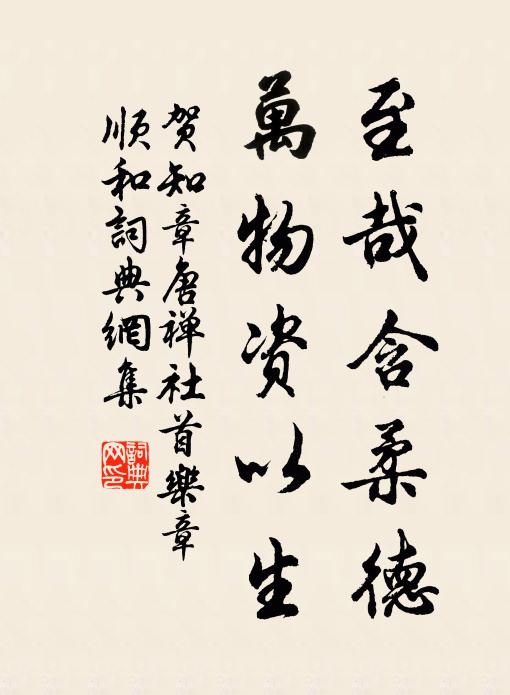 至哉含柔德
萬物资以生
贺知章唐禅社首樂章
顺和詞典網集
詞典網印